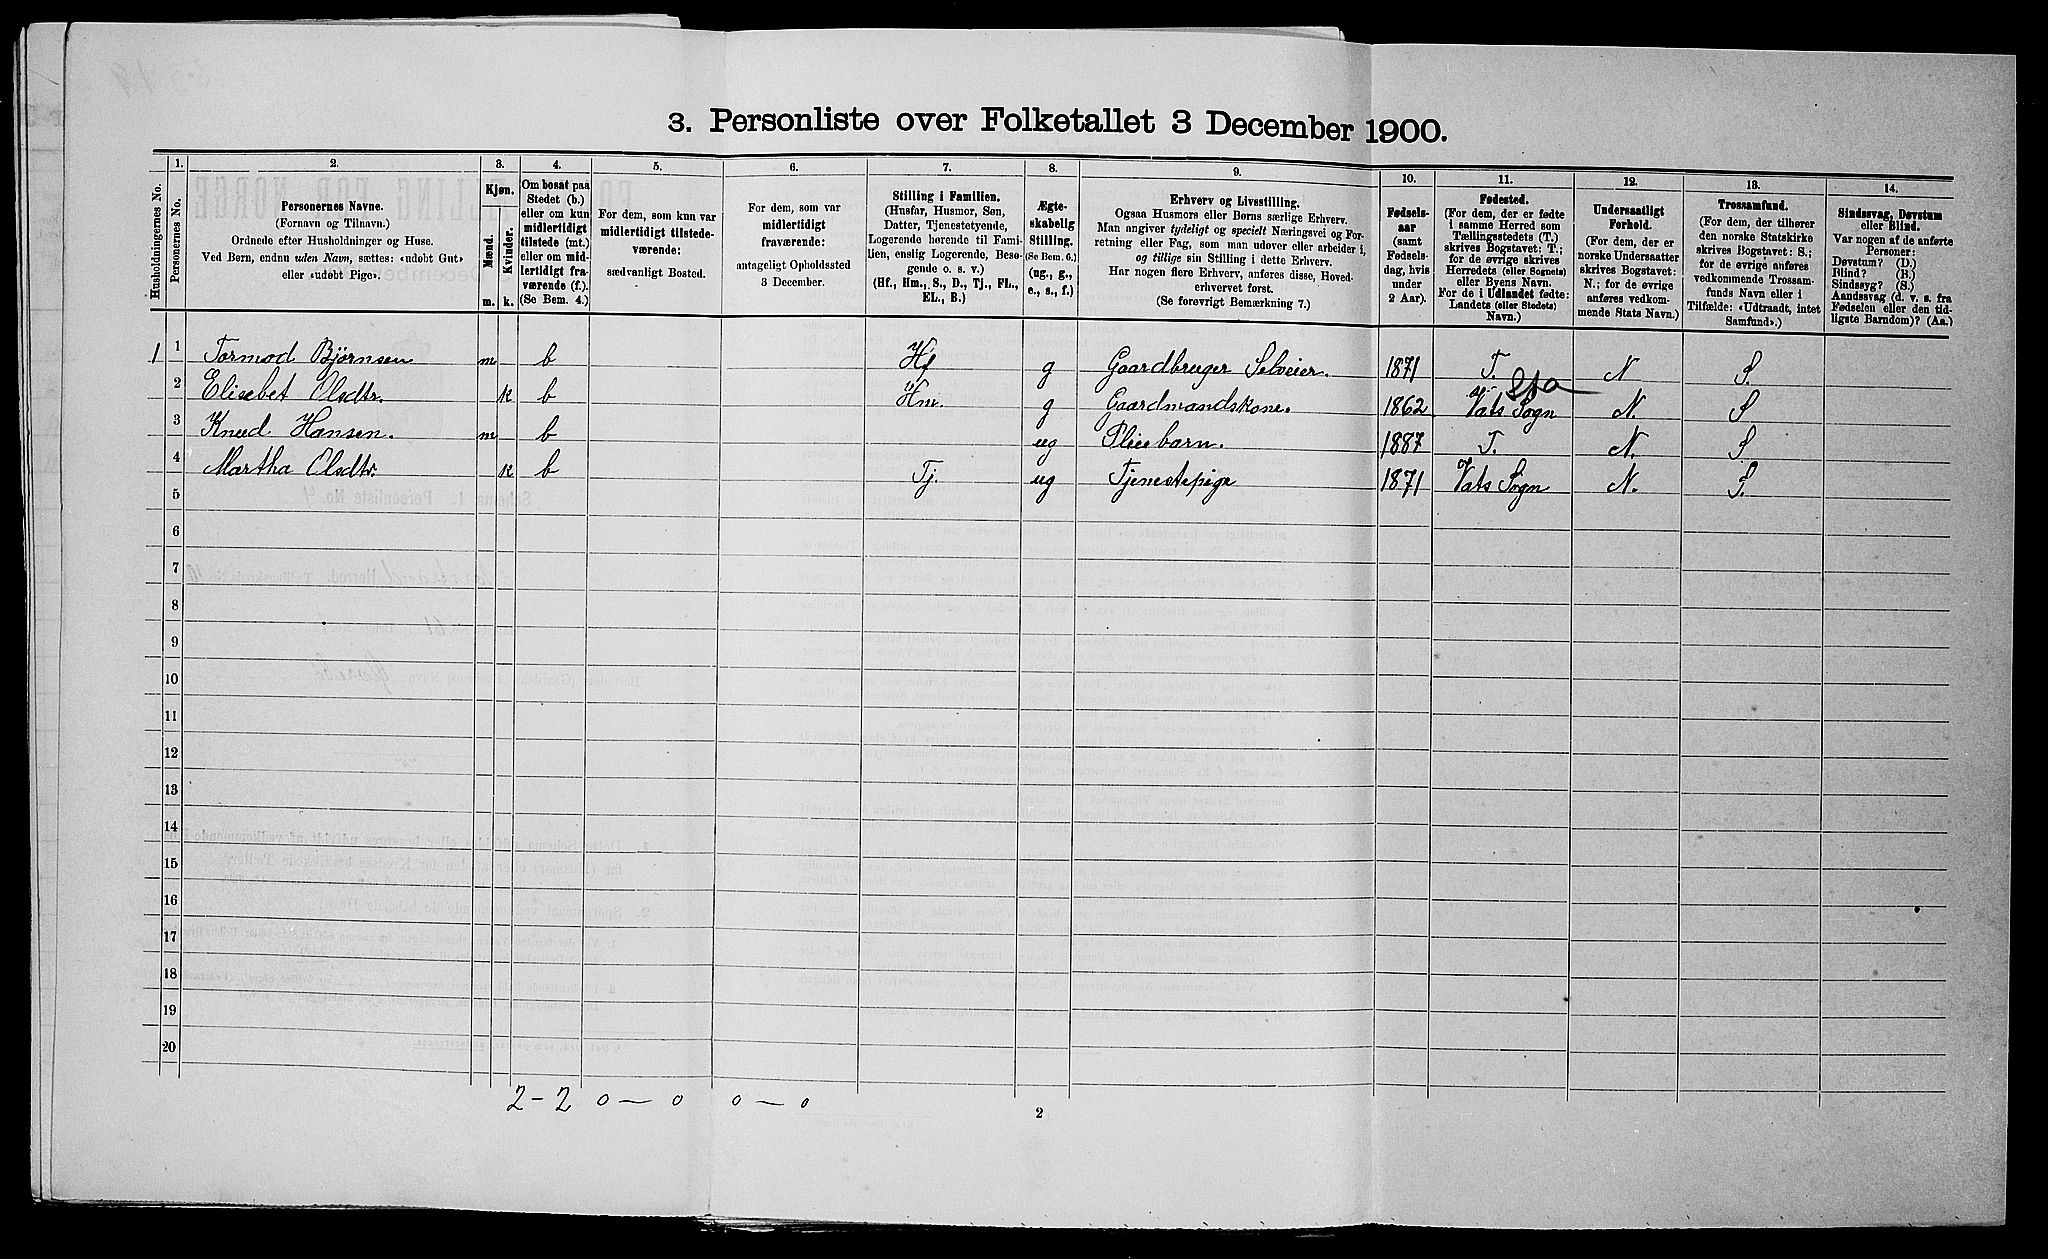 3. Personliste over Folketallet 3 December 1900.
1. 2. 3. 4. 5. 6. 7. 8. 9. 10. 11. 12. 13. 14.
Husholdningernes No.
Personernes No.
Personernes Navne.
(Fornavn og Tilnavn.)
Ordnede efter Husholdninger og Huse.
Ved Børn, endnu uden Navn, sættes: «udøbt Gut»
eller «udøbt Pige».
Kjøn.
Mænd.
Kvinder.
m. k.
Om bosat paa
Stedet (b.)
eller om kun
midlertidigt
tilstede (mt.)
eller om mid-
lertidigt fra-
værende (f.).
(Se Bem. 4.)
For dem, som kun var
midlertidigt tilstede-
værende:
sædvanligt Bosted.
For dem, som var
midlertidigt
fraværende:
antageligt Opholdssted
3 December.
Stilling i Familien.
(Husfar, Husmor, Søn,
Datter, Tjenestetyende,
Logerende hørende til Fami-
lien, enslig Logerende, Besø-
gende o. s. v.)
(Hf., Hm., S., D., Tj., FL.,
EL., B.)
Ægte-
skabelig
Stilling.
(Se Bem. 6.)
(ug., g.,
e., s., f.)
Erhverv og Livsstilling.
Ogsaa Husmors eller Børns særlige Erhverv.
Man angiver tydeligt og specielt Næringsvei og For-
retning eller Fag, som man udøver eller arbeider i,
og tillige sin Stilling i dette Erhverv.
Har nogen flere Erhverv, anføres disse, Hoved-
erhvervet først.
(Se forøvrigt Bemærkning 7.)
Fødsels-
aar
(samt
Fødsels-
dag, hvis
under
2 Aar).
Fødested.
(For dem, der er fødte
i samme Herred som
Tællingsstedets (T.)
skrives Bogstavet: T.;
for de øvrige skrives
Herredets (eller Sognets)
eller Byens Navn.
For de i Udlandet fødte:
Landets (eller Stedets)
Navn.)
Undersaatligt
Forhold.
(For dem, der er
norske Undersaatter
skrives Bogstavet:
N.; for de øvrige
anføres vedkom-
mende Stats Navn.)
Trossamfund.
(For dem, der tilhører
den norske Statskirke
skrives Bogstavet: S.;
for de øvrige anføres
vedkommende Trossam-
funds Navn eller i
Tilfælde: «Udtraadt, intet
Samfund».)
Sindssvag, Døvstum
eller Blind.
Var nogen af de anførte
Personer:
Døvstum? (D.)
Blind? (B.)
Sindssyg? (S.)
Aandssvag (d. v. s. fra
Fødselen eller den tid-
ligste Barndom)? (Aa.)
1 1 Tormod Bjørnsen m b Hf g Gaardbruger Selveier. 1871 T. N S.
2 Elisebet Olsdtr. k b Hm. g Gaardmandskone. 1862 Vats Sogn N. S
3 Knud Hansen. m b ug Pleiebarn. 1887 T. N. S
4 Martha Olsdtr. k b Tj. ug Tjenestepige 1871 Vats Sogn N. S.
5
6
7
8
9
10
11
12
13
14
15
16
17
18
19
20
2-2 0 — 0 0 — 0
2